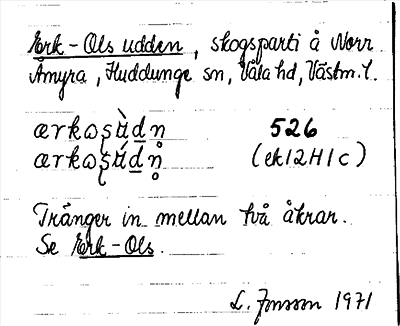 Erk-Ols udden, skogsparti å Norr
Åmyra, Huddunge sn, Våla hd, Västm. l.
526
(ek12H1c)
Tränger in mellan två åkrar.
Se Erk-Ols.
L. Jonsson 1971